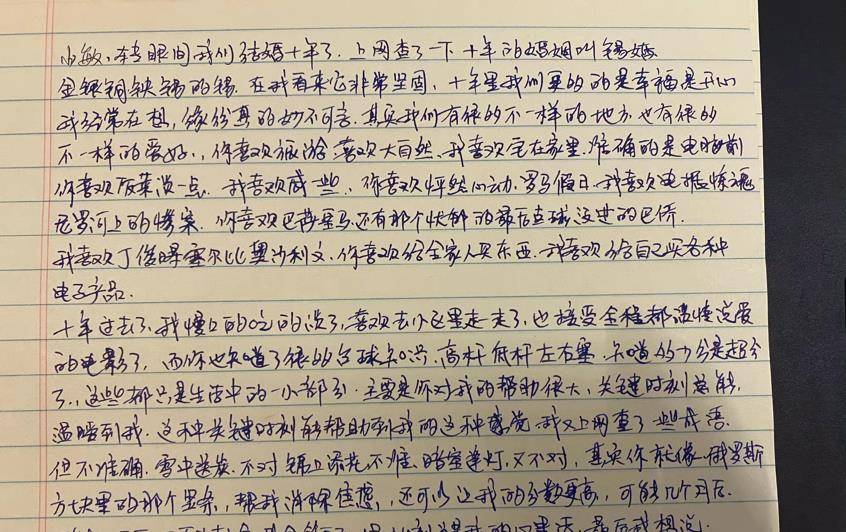 小敏、转眼间我们结婚十年了.上网查了一下十年的婚姻叫锡婚
金银铜铁锡的锡.在我看来它非常坚固,十年里我们更多的是幸福是开心
我经常在想,缘份真的妙不可言.其实我们有很多不一样的地方.也有很多
不一样的爱好.,你喜欢旅游.喜欢大自然.我喜欢宅在家里.准确的是电脑前
你喜欢饭菜淡一点.我喜欢咸一些.你喜欢怦然心动.罗马假日.我喜欢电锯惊魂
尼罗河上的惨案.你喜欢巴萨皇马.还有那个忧郁的最后点球没进的巴乔.
我喜欢丁俊晖塞尔比奥沙利文.你喜欢给全家人买东西.我喜欢给自己买各种
电子产品.
十年过去了.我慢慢的吃的淡了.喜欢去小区里走一走了.也接受全程都谈情说爱
的电影了.而你也知道了很多台球知识.高杆低杆左右塞.知道的十分是超分
了.,这些都只是生活中的一小部分.主要是你对我的帮助很大,关键时刻总能
温暖到我.这种关键时刻能帮助到我的这种感觉.我又上网查了一些成语.
但不准确.雪中送炭.不对锦上添花不准.暗室逢灯.又不对,其实你就像俄罗斯
方块里的那个竖条,帮我消除焦虑,还可以让我的分数更高,可能几个月后.